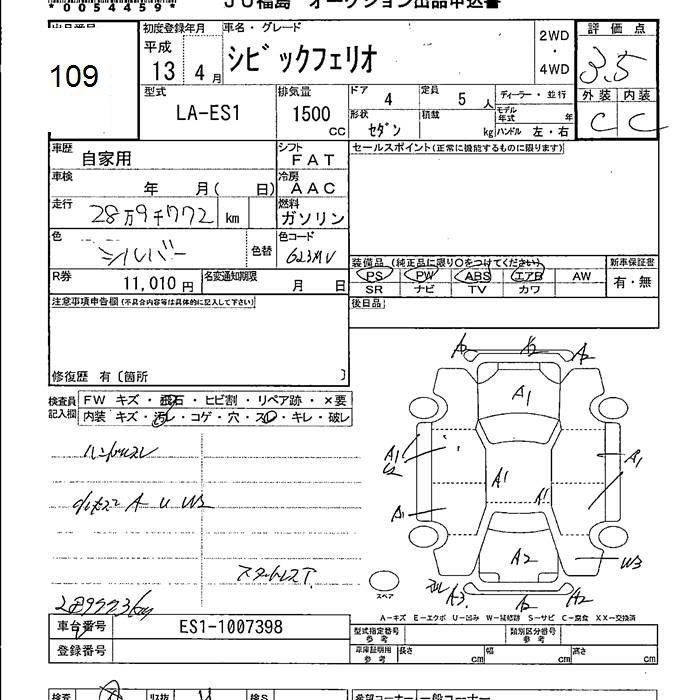 * 0054459 *
JU福島 オークション出品申込書
出品番号
109
初度登録年月
平成
13 4月
車名・グレード
シビックフェリオ
2WD
・
4WD
評価点
3.5
外装 内装
C C
型式
LA-ES1
排気量
1500
CC
ドア
4
定員
5人
ディーラー・並行
モデル年式 年
形状
セダン
積載
kg
ハンドル 左・右
車歴
自家用
シフト
FAT
セールスポイント(正常に機能するものに限ります)
車検
年 月( 日)
冷房
AAC
走行
28万9千772 km
燃料
ガソリン
色
シルバー
色替
色コード
装備品(純正品に限り○をつけてください)
PS PW ABS エアB AW
SR ナビ TV カワ
新車保証書
有・無
R券
11,010円
名変通知期限
月 日
後日品
注意事項申告欄(不具合内容等は具体的に記入して下さい)
修復歴 有〔箇所 〕
検査員記入欄
FW キズ・飛石・ヒビ割・リペア跡・×要
内装 キズ・汚レ・コゲ・穴・スレ・キレ・破レ
ハンドルスレ
A U W2
スタットレスT
A2 A2 A2
A1
A1
U2
A1
A1
A1
A1
A2
W3
A3 A2 A2
スペア
A-キズ E-エクボ U-凹み W-補修跡 S-サビ C-腐食 XX-交換済
車台番号
ES1-1007398
登録番号
型式指定番号
参考
類別区分番号
参考
車庫証明用
参考
長さ cm
幅 cm
高さ cm
検査
リス抜
検S
希望コーナー
一般コーナー